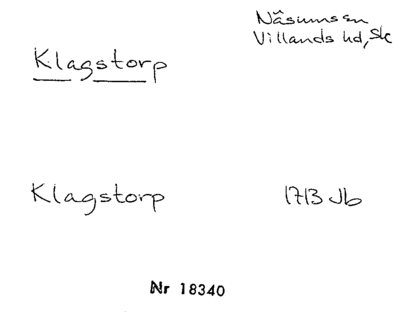 Näsums sn
Villands hd, Sk
Klagstorp
Klagstorp 1713 Jb
Nr 18340